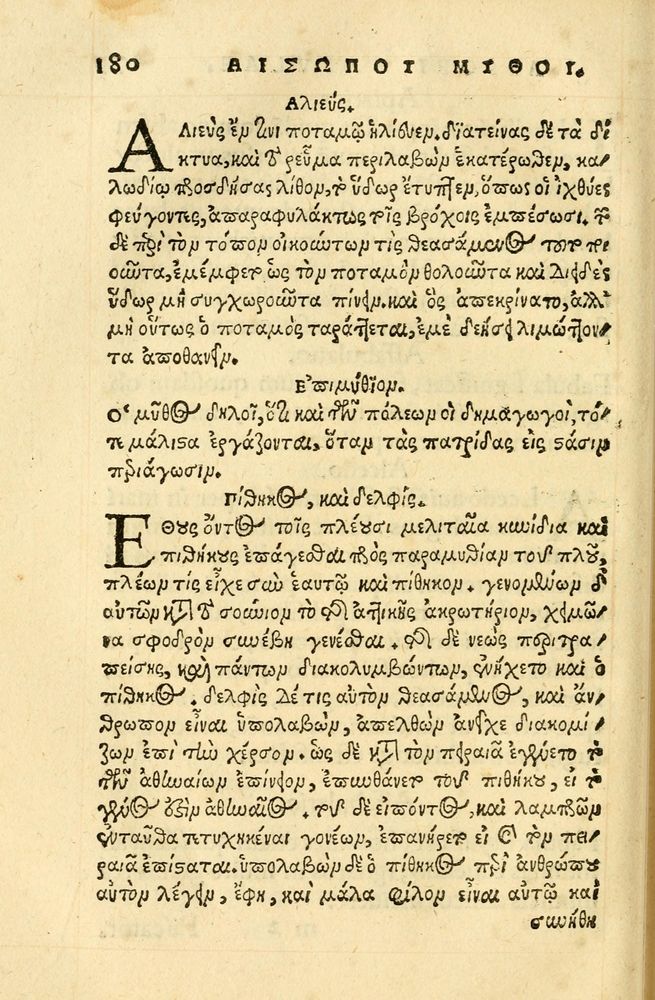 180 ΑΙΣΩΠΟΥ ΜΥΘΟΙ.
Αλιεύς.
ΑΛιεὺς ἔν τινι ποταμῷ ἡλίευεν. διατείνας δὲ τὰ δί
κτυα, καὶ τὸ ῥεῦμα περιλαβὼν ἑκατέρωθεν, κα/
λωδίῳ προσδήσας λίθον, τὸ ὕδωρ ἔτυπτεν, ὅπως οἱ ἰχθύες
φεύγοντες, ἀπαραφυλάκτως τοῖς βρόχοις ἐμπέσωσι. τῶν
δὲ περὶ τὸν τόπον οἰκούντων τὶς θεασάμενος τοῦτο ποι
οῦντα, ἐμέμφετο ὡς τὸν ποταμὸν θολοῦντα καὶ διειδὲς
ὕδωρ μὴ συγχωροῦντα πίνειν. καὶ ὃς ἀπεκρίνατο, ἀλλ'
μὴ οὕτως ὁ ποταμὸς ταράττεται, ἐμὲ δεήσει λιμώττον/
τα ἀποθανεῖν.
Επιμύθιον.
Ο῾ μῦθος δηλοῖ, ὅτι καὶ τῶν πόλεων οἱ δημαγωγοὶ, τό/
τε μάλιστα ἐργάζονται, ὅταν τὰς πατρίδας εἰς στάσιν
περιάγωσιν.
Πίθηκος, καὶ δελφίς.
ΕΘους ὄντος τοῖς πλέουσι μελιταῖα κυνίδια καὶ
πιθήκους ἐπάγεσθαι πρὸς παραμυθίαν τοῦ πλοῦ,
πλέων τίς εἶχε σὺν ἑαυτῷ καὶ πίθηκον. γενομένων δ'
αὐτῶν κατὰ τὸ σούνιον τὸ τῆς ἀττικῆς ἀκρωτήριον, χειμῶ/
να σφοδρὸν συνέβη γενέσθαι. τῆς δὲ νεὼς περιτρα/
πείσης, καὶ πάντων διακολυμβώντων, ἐνήχετο καὶ ὁ
πίθηκος. δελφὶς δέ τις αὐτὸν θεασάμενος, καὶ ἄν/
θρωπον εἶναι ὑπολαβὼν, ἀπελθὼν ἀνεῖχε διακομί/
ζων ἐπὶ τὴν χέρσον. ὡς δὲ κατὰ τὸν πειραιᾶ ἐγένετο τὸ
τῶν ἀθηναίων ἐπίνειον, ἐπυνθάνετο τοῦ πιθήκου, εἰ τὸ
γένος ἐστὶν ἀθηναῖος. τοῦ δὲ εἰπόντος, καὶ λαμπρῶν
ἐνταῦθα τετυχηκέναι γονέων, ἐπανήρετο εἰ καὶ τὸν πει/
ραιᾶ ἐπίσταται. ὑπολαβὼν δὲ ὁ πίθηκος περὶ ἀνθρώπου
αὐτὸν λέγειν, ἔφη, καὶ μάλα φίλον εἶναι αὐτῷ καὶ
συνήθη